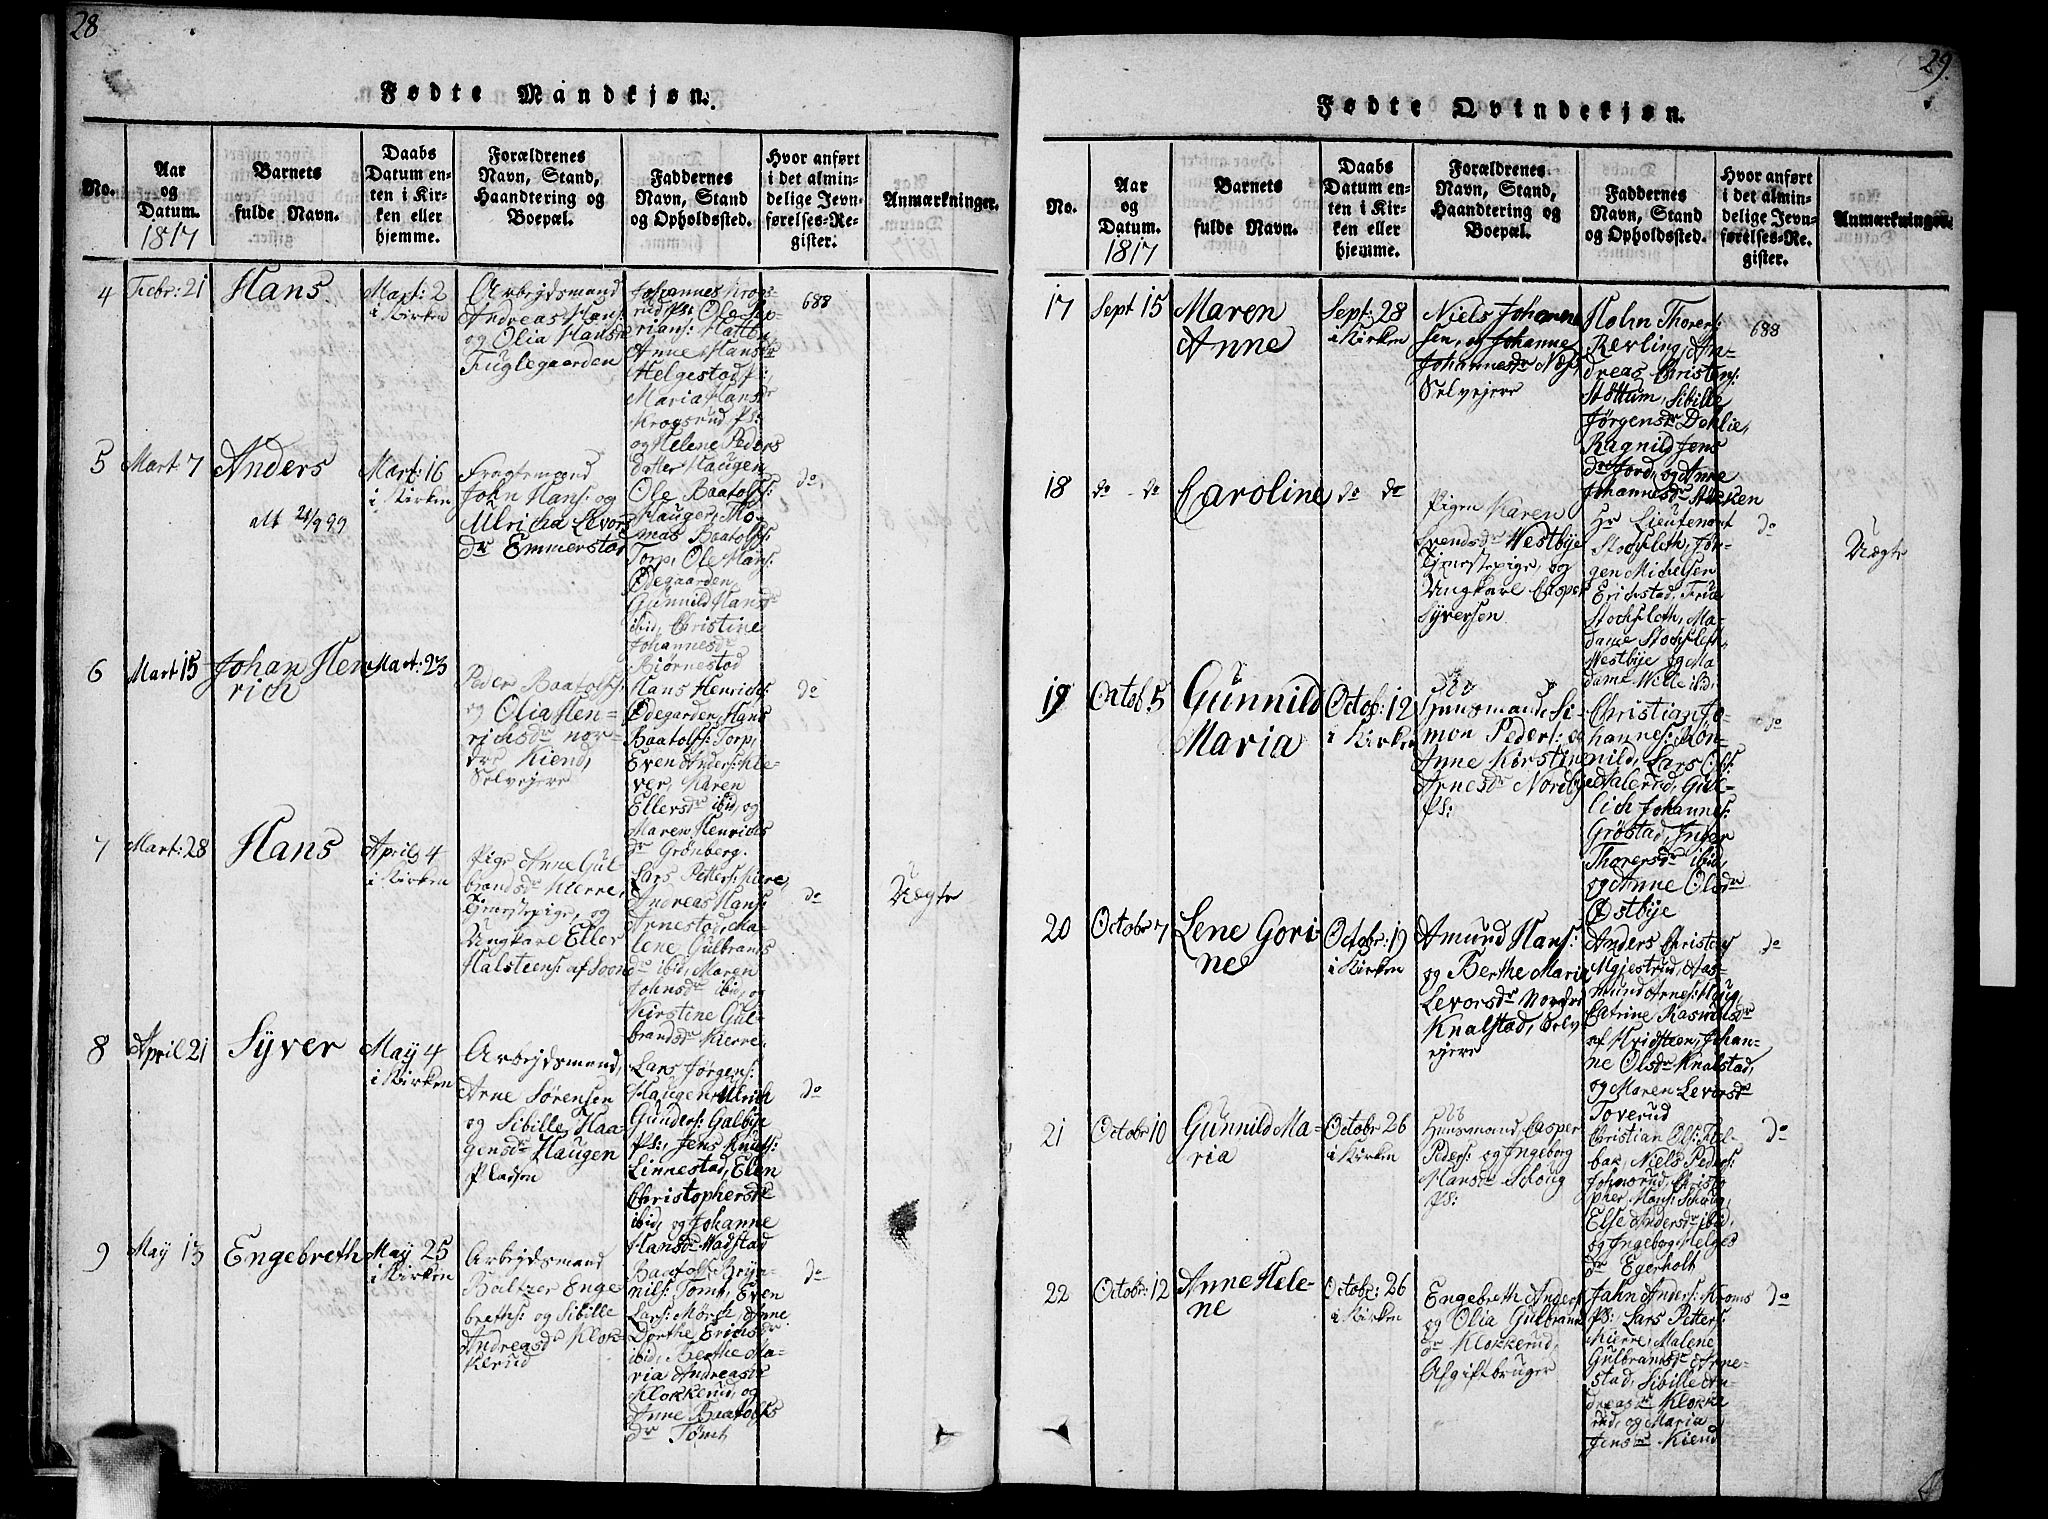 28
Fødte Mandkjøn.
No.
Aar
og
Datum.
1817
Barnets
fulde Navn.
Daabs
Datum en-
ten i Kir-
ken eller
hjemme.
Forældrenes
Navn, Stand,
Haandtering og
Boepæl.
Faddernes
Navn, Stand
og Opholdssted.
Hvor anført
i det almin-
delige Jevn-
førelses-Re-
gister.
Anmærkninger.
4
Febr: 21
Hans.
Mart: 2
i Kirken
Arbejdsmand
Andreas Hans:
og Olia Hansdr
Fuglegaarden
Johannes Krogs-
rud Ps: Ole Syv-
rians: Hatten
Anne Hansdr
Helgestad Ps:
Maria Hansdr
Krogsrud Ps:
og Helene Peders
datter Haugen
688
5
Mart 7
Anders
att 21/9 99
Mart: 16
i Kirken
Fragtemand
John Hans: og
Ulricha Levors
dr Emmerstad
Ole Baatolfs:
Hauger, Tho-
mas Baatolfs:
Torp, Ole Hans:
Ødegaarden
Gunnild Hansdr
ibid, Christine
Johannesdr
Bjørnestad
do
6
Mart 15
Johan Hen
rich
Mart: 23
Peder Baatolfs:
og Olia Hen-
richsdr nor-
dre Kiend,
Selvejere
Hans Henrichs:
Ødegarden, Hans
Baatolfs: Torp,
Even Anders: Kle-
ver, Karen
Ellersdr ibid, og
Maren Henrichs
dr Grønberg.
do
7
Mart: 28
Hans
April 4
i Kirken
Pige Anne Gul-
brandsdr Kierre,
Tjenestepige, og
Ungkarl Eller
Halsteens: af Soon
Lars Petters: Kiere,
Andreas Hans:
Arnestad, Ma-
lene Gulbrands
dr ibid, Maren
Johnsdr ibid, og
Kirstine Gul-
brandsdr Kierre.
do
Uægte
8
April 21
Syver
May 4
i Kirken
Arbejdsmand,
Arne Sørensen
og Sibille Haa-
gensdr Haugen
Pladsen
Lars Jørgens:
Haugen, Ulrich
Gunders: Galbye
Ps: Jens Knuds:
Linnestad, Elen
Christophersdr
ibid, og Johanne
Hansdr Wadstad
do
9
May 13
Engebreth
May 25
i Kirken
Arbejdsmand
Baltzer Enge
breths: og Sibille
Andreasdr Klok-
kerud
Baatolf Bryn-
nils: Tomt, Even
Lars: Mørch, Anne
Dorthe Erichsdr
ibid, Berthe Ma-
ria Andreasdr
Klokkerud, og
Anne Baatolfs
dr Tomt
do
29.
Fødte Qvindekjøn.
No.
Aar
og
Datum.
1817
Barnets
fulde Navn.
Daabs
Datum en-
ten i Kir-
ken eller
hjemme.
Forældrenes
Navn, Stand,
Haandtering og
Boepæl.
Faddernes
Navn, Stand
og Opholdssted.
Hvor anført
i det almin-
delige Jevn-
førelses-Re-
gister.
Anmærkninger.
17
Sept 15
Maren
Anne
Sept: 28
i Kirken
Niels Johanne
sen, og Johanne
Johannesdr Næs,
Selvejere
John Thorers:
Revling, An-
dreas Christens:
Støttum, Sibille
Jørgensdr Dehlie,
Ragnild Jens
dr Jord, og Anne
Johannesdr Aneken
688
18
do do
Caroline
do do
Pigen Karen
Svendsdr Westbye
Tjenestepige, og
Ungkarl Casper
Syversen
Hr Lieutenant
Stochfleth, Jør-
gen Michelsen
Erichstad, Frue
Stochfleth, Ma-
dame Stochfleth
Westbye og Ma-
dame Wille ibid,
do
Uægte
19
Octob: 5
Gunnild
Maria
Octob: 12
i Kirken
Huusmand Si-
mon Peders: og
Anne Kirstine
Arnesdr Nordbye
Ps:
Christian Jo-
hannes: Mon-
nild, Lars Ols:
Halerud, Gul-
lich Johannes:
Grøstad, Inger
Thorersdr ibid,
og Anne Olsdr
Østbye
do
20
Octobr 7
Lene Gori-
ne
Octobr: 19
i Kirken
Amund Hans:
og Berthe Maria
Levorsdr Nordre
Knalstad, Selv
ejere
Anders Christens
Mgjestrud, Aas-
mund Arnes: Haug,
Catrine Rasmusdr
af Hvidsteen, Johan-
ne Olsdr Knalstad,
og Maren Levorsdr
Toverud
do
21
Octobr 10
Gunnild Ma-
ria
Octobr 26
i Kirken
Huusmand Casper
Peders: og Ingeborg
Hansdr Schoug
Ps:
Christian Ols: Hol-
bak, Niels Peders:
Johnsrud, Christo
pher Hans: Schoug
Else Andersdr ibid,
og Ingeborg Helges
dr Egerholt
do
22
Octobr: 12
Anne Hele-
ne
Octobr: 26
i Kirken
Engebreth Anders:
og Olia Gulbrands
dr Klokkerud,
Afgiftbruger
Jahn Anders: Kroms
Ps: Lars Petters:
Kierre, Malene
Gulbransdr Arne-
stad, Sibille An-
dreasdr Klokke
rud, og Maria
Jensdr Kiend
do